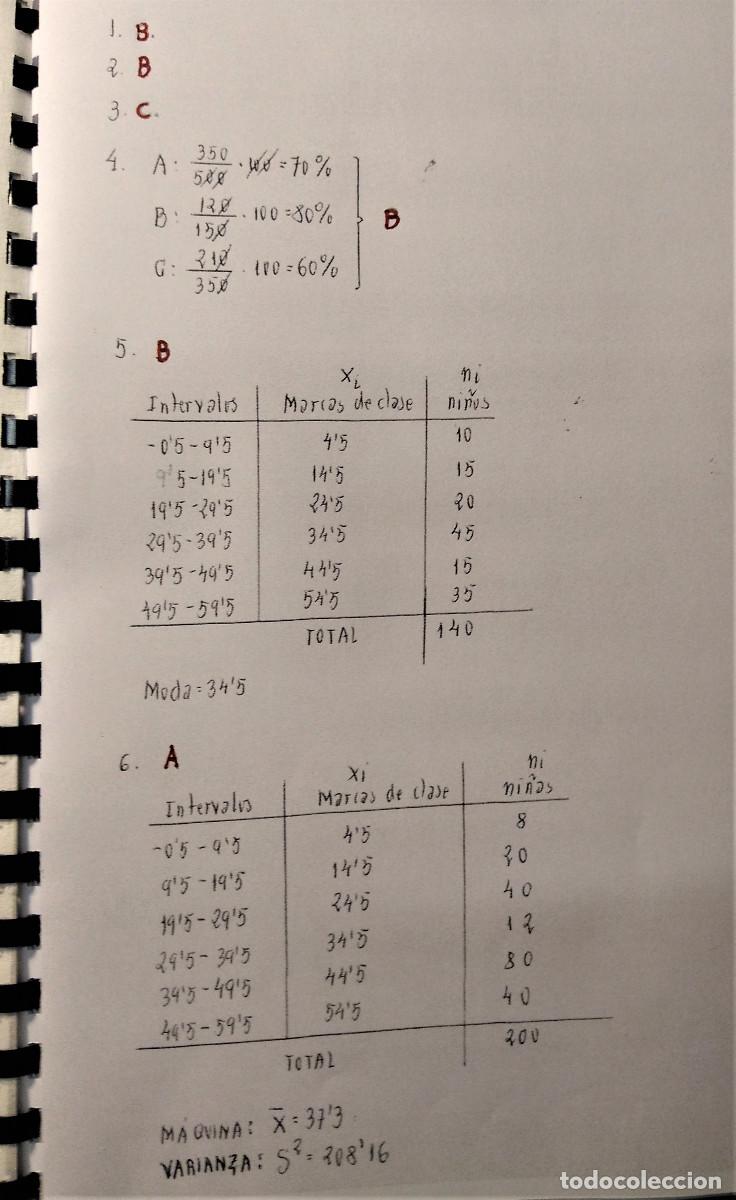 1. B.
2. B
3. C.
4. A: 350/500 · 100 = 70%
B: 120/150 · 100 = 80% } B
C: 210/350 · 100 = 60%
5. B
xi ni
Intervalos Marcas de clase niños
-0'5 - 9'5 4'5 10
9'5 - 19'5 14'5 15
19'5 - 29'5 24'5 20
29'5 - 39'5 34'5 45
39'5 - 49'5 44'5 15
49'5 - 59'5 54'5 35
TOTAL 140
Moda = 34'5
6. A
xi ni
Intervalos Marcas de clase niñas
-0'5 - 9'5 4'5 8
9'5 - 19'5 14'5 20
19'5 - 29'5 24'5 40
29'5 - 39'5 34'5 12
39'5 - 49'5 44'5 80
49'5 - 59'5 54'5 40
TOTAL 200
MÁQUINA: x̄ = 37'3
VARIANZA: S² = 208'16
todocoleccion